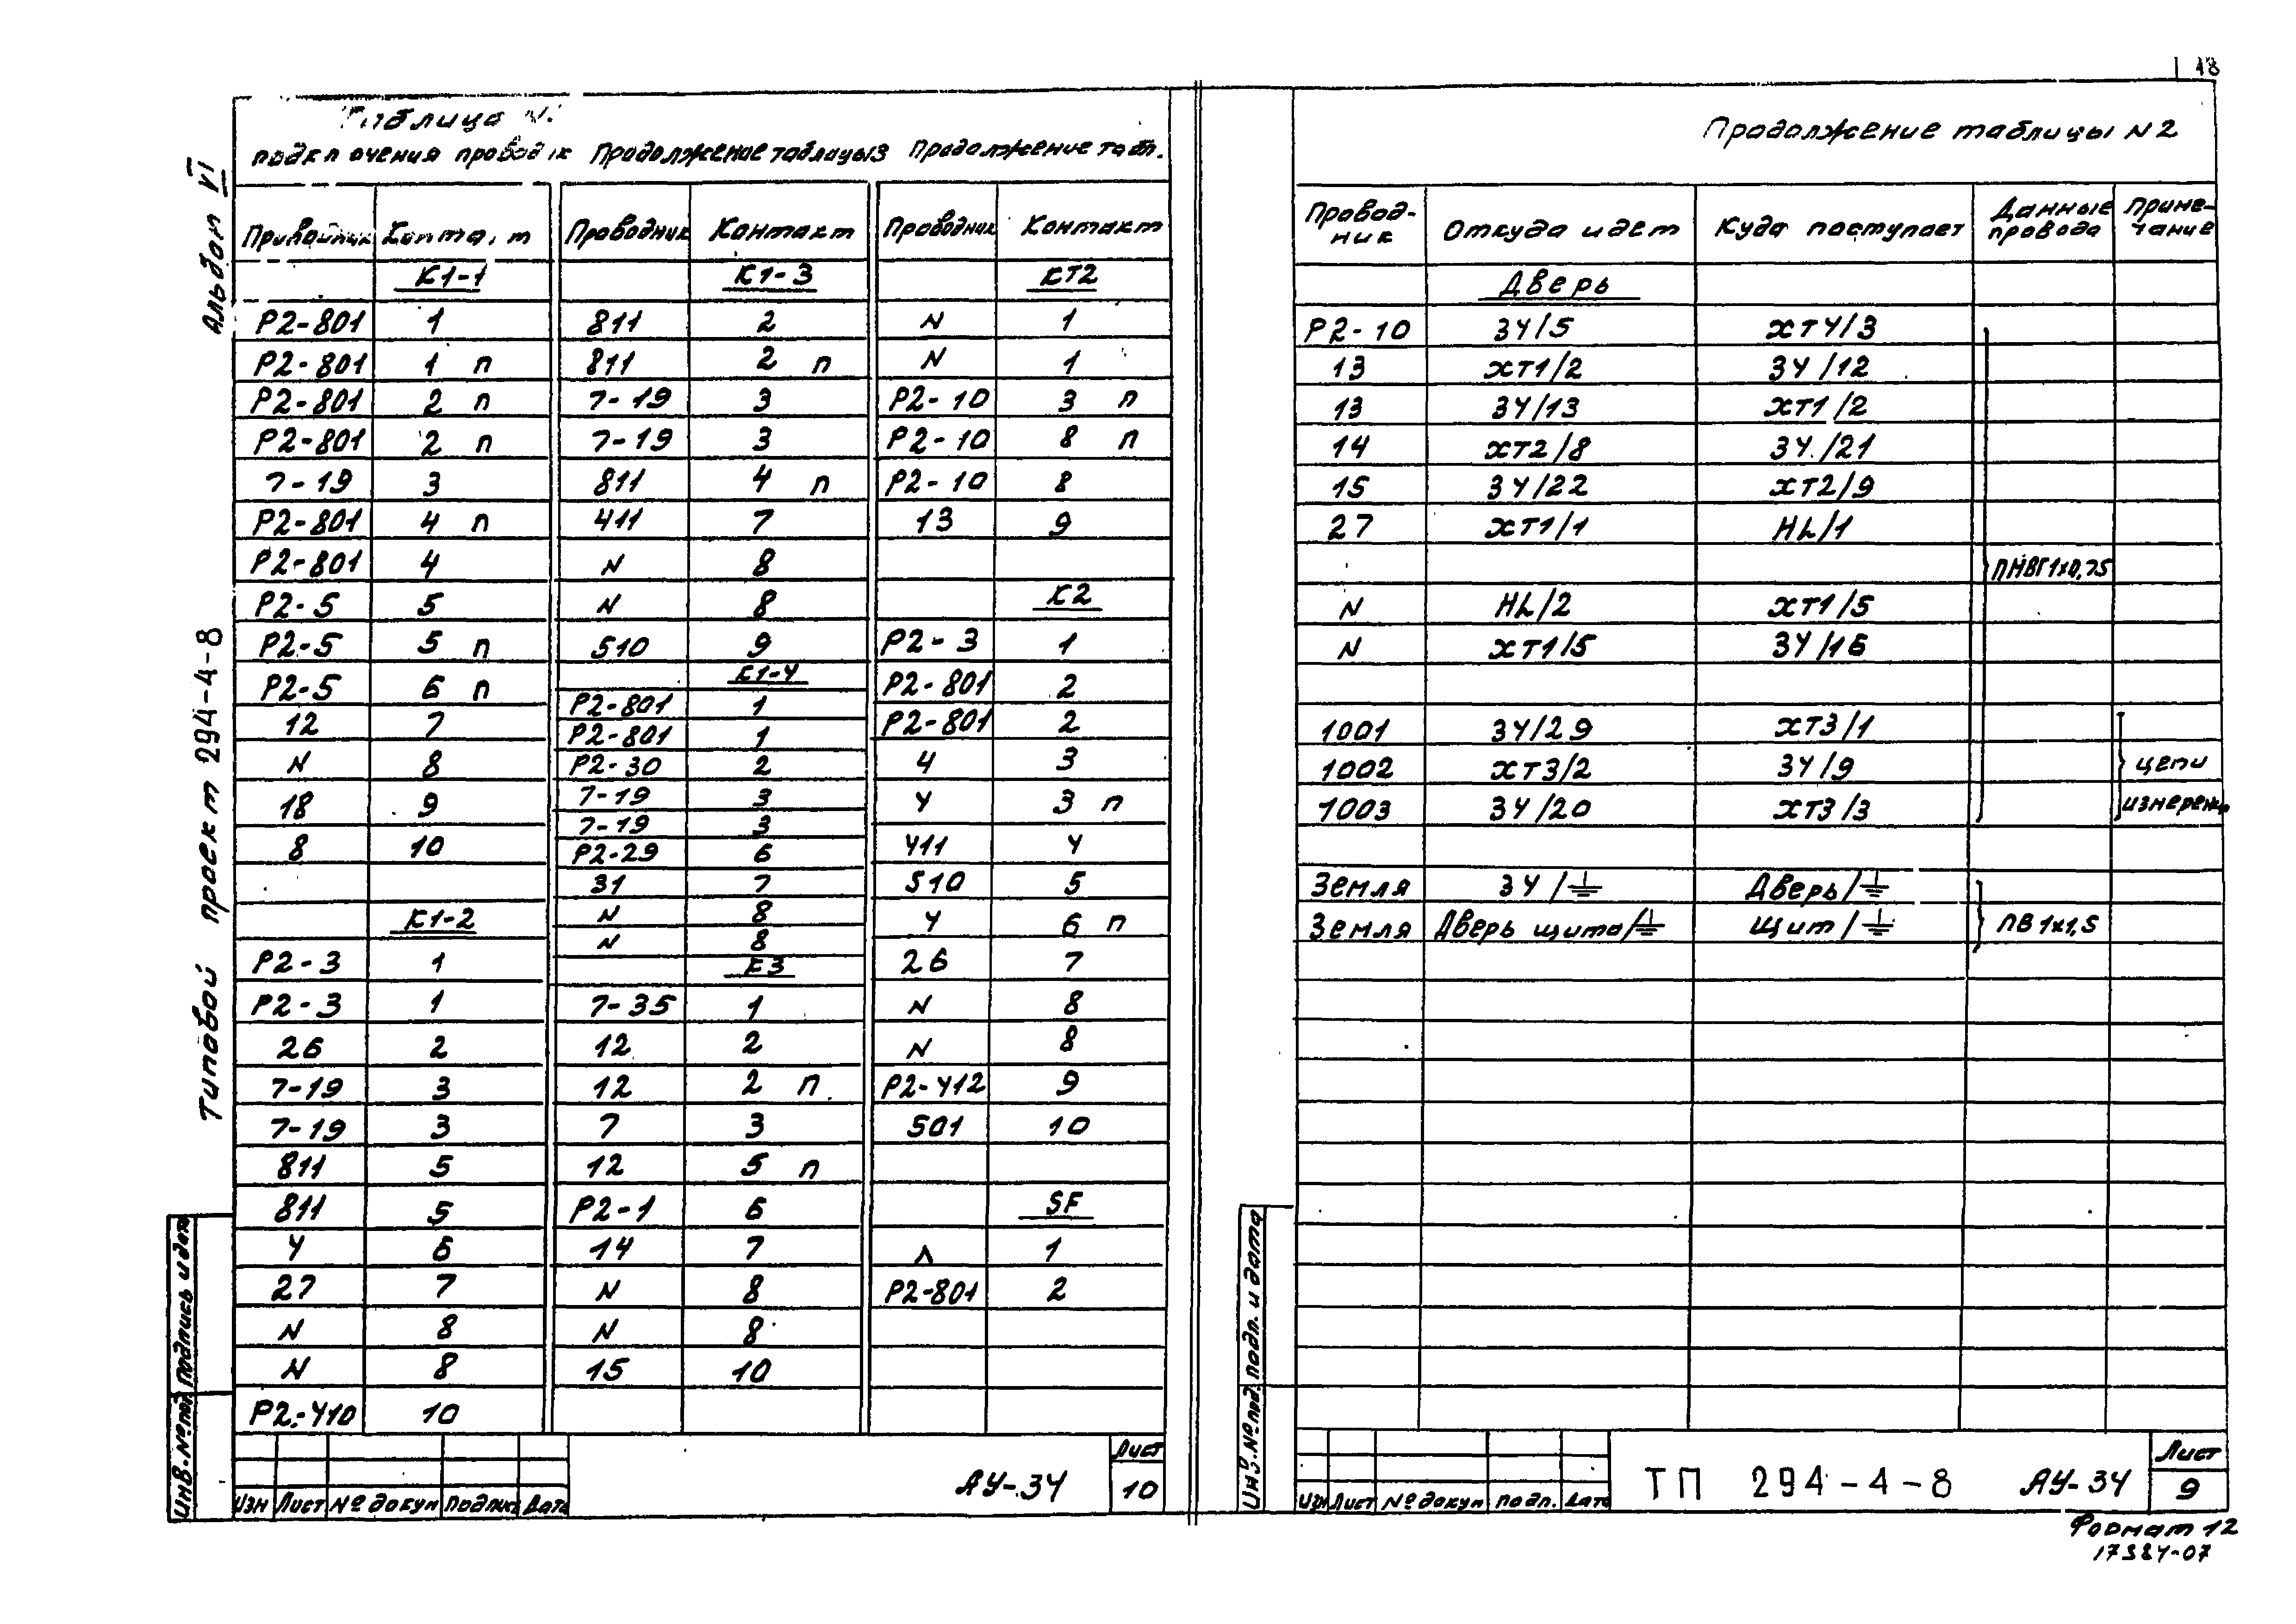 18
Альбом VI
Типовой проект 294-4-8
Таблица
Продолжение таблицы 3
Продолжение табл.
Контакт
К1-1
Р2-801 1
Р2-801 1 п
Р2-801 2 п
Р2-801 2 п
7-19 3
Р2-801 4 п
Р2-801 4
Р2-5 5
Р2-5 5 п
Р2-5 6 п
12 7
N 8
18 9
8 10
К1-2
Р2-3 1
Р2-3 1
26 2
7-19 3
7-19 3
811 5
811 5
4 6
27 7
N 8
N 8
Р2-410 10
Проводник Контакт
К1-3
811 2
811 2 п
7-19 3
7-19 3
811 4 п
411 7
N 8
N 8
510 9
К1-4
Р2-801 1
Р2-801 1
Р2-30 2
7-19 3
7-19 3
Р2-29 6
31 7
N 8
N 8
К3
7-35 1
12 2
12 2 п
7 3
12 5 п
Р2-1 6
14 7
N 8
N 8
15 10
Проводник Контакт
КТ2
N 1
N 1
Р2-10 3 п
Р2-10 8 п
Р2-10 8
13 9
К2
Р2-3 1
Р2-801 2
Р2-801 2
4 3
4 3 п
411 4
510 5
4 6 п
26 7
N 8
N 8
Р2-412 9
501 10
SF
1
Р2-801 2
Инв.№подл Подпись и дата
Изм Лист №докум Подпись Дата
АУ-34
Лист
10
Продолжение таблицы N2
Провод-
ник
Откуда идет
Куда поступает
Данные
провода
Приме-
чание
Дверь
Р2-10 ЗУ/5 ХТ4/3
13 ХТ1/2 ЗУ/12
13 ЗУ/13 ХТ1/2
14 ХТ2/8 ЗУ/21
15 ЗУ/22 ХТ2/9
27 ХТ1/1 HL/1
ПНВГ1х0,75
N HL/2 ХТ1/5
N ХТ1/5 ЗУ/16
1001 ЗУ/29 ХТ3/1
1002 ХТ3/2 ЗУ/9 цепи
1003 ЗУ/20 ХТ3/3
Земля ЗУ/⏚ Дверь/⏚
Земля Дверь щита/⏚ Щит/⏚ ПВ1х1,5
Инв.№подл. Подп. и дата
Изм Лист №докум Подп. Дата
ТП 294-4-8 АУ-34
Лист
9
Формат 12
17384-07